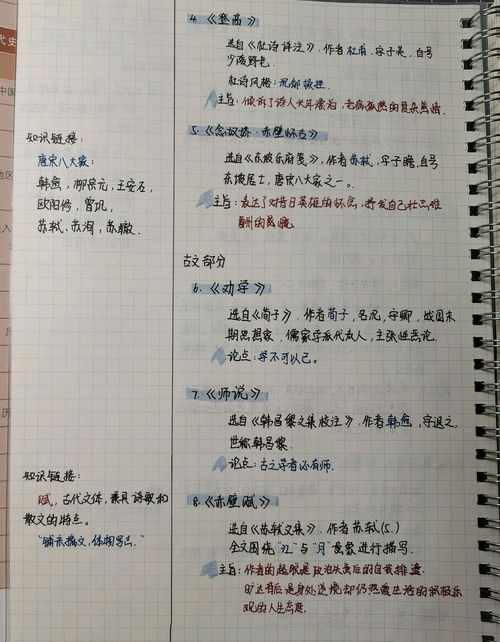 4.《登高》
选自《杜诗详注》.作者杜甫,字子美,自号
少陵野老.
杜诗风格:沉郁顿挫.
主旨:倾诉了诗人长年漂泊、老病孤愁的复杂感情.
知识链接:
唐宋八大家:
韩愈,柳宗元,王安石,
欧阳修,曾巩,
苏轼、苏洵,苏辙.
5.《念奴娇·赤壁怀古》
选自《东坡乐府笺》,作者苏轼,字子瞻,自号
东坡居士,唐宋八大家之一。
主旨:表达了对昔日英雄的怀念,抒发自己壮志难
酬的感慨
古文部分
6.《劝学》
选自《荀子》.作者荀子,名况,字卿,战国末
期思想家,儒家学派代表人,主张性恶论.
论点:学不可以已。
7.《师说》
选自《韩昌黎文集校注》.作者韩愈,字退之,
世称韩昌黎.
论点:古之学者必有师.
知识链接:
赋,古代文体,兼具诗歌和
散文的特点。
"铺采摛文,体物写志."
8.《赤壁赋》
选自《苏轼文集》.作者苏轼(5.)
全文围绕"江"与"月"意象进行描写.
主旨:作者的超脱是政治失意后的自我排遣
旷达背后是身处逆境却仍热爱生活的积极乐
观的人生态度.